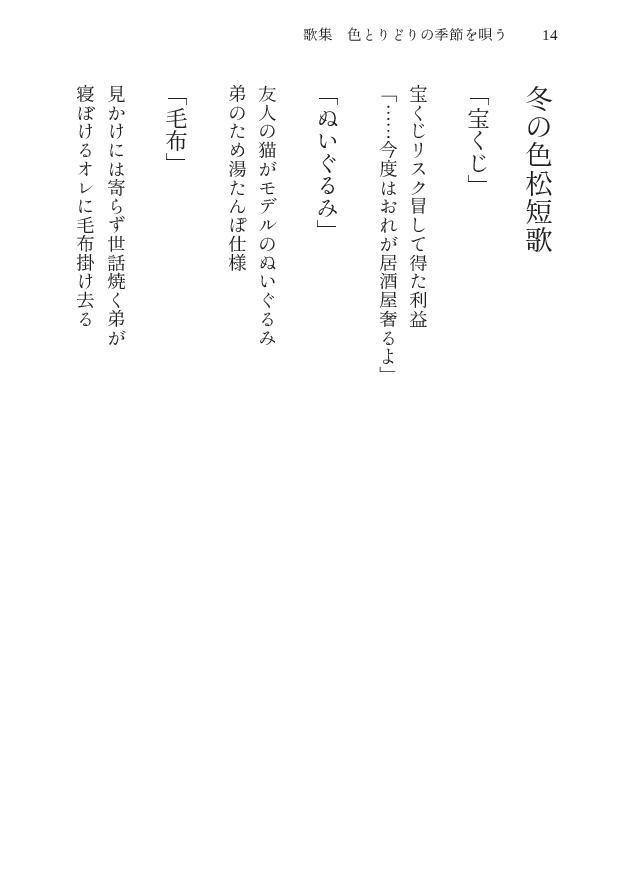 歌集　色とりどりの季節を唄う　14
冬の色松短歌
「宝くじ」
宝くじリスク冒して得た利益
「……今度はおれが居酒屋奢るよ」
「ぬいぐるみ」
友人の猫がモデルのぬいぐるみ
弟のため湯たんぽ仕様
「毛布」
見かけには寄らず世話焼く弟が
寝ぼけるオレに毛布掛け去る